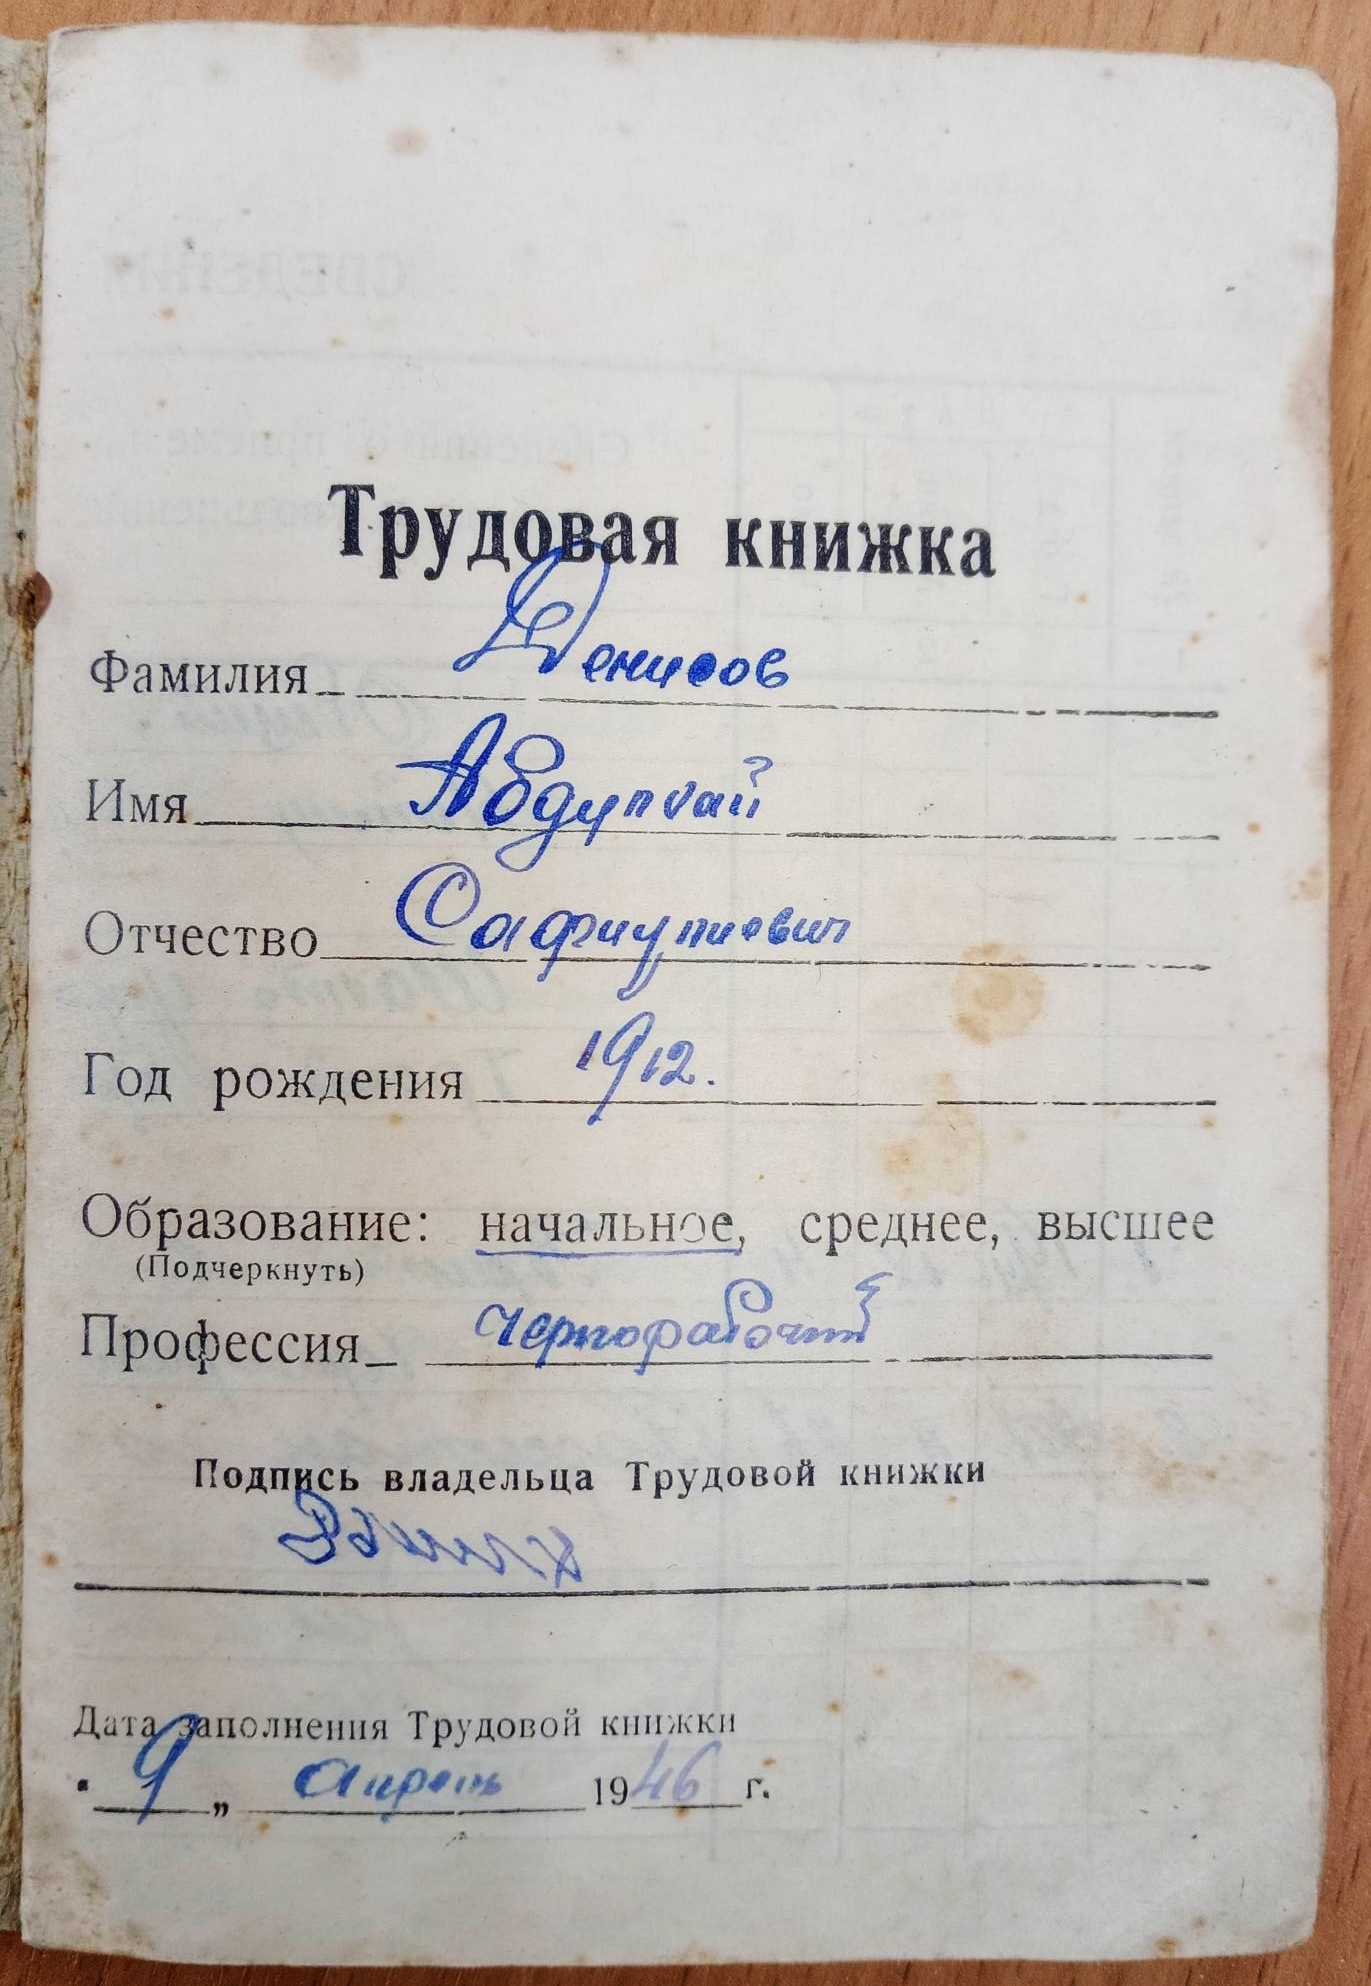 Трудовая книжка
Фамилия Денисов
Имя Абдулхай
Отчество Сафиуллиевич
Год рождения 1912.
Образование: начальное, среднее, высшее
(Подчеркнуть)
Профессия Чернорабочий
Подпись владельца Трудовой книжки
Дата заполнения Трудовой книжки
"9„ апрель 1946 г.